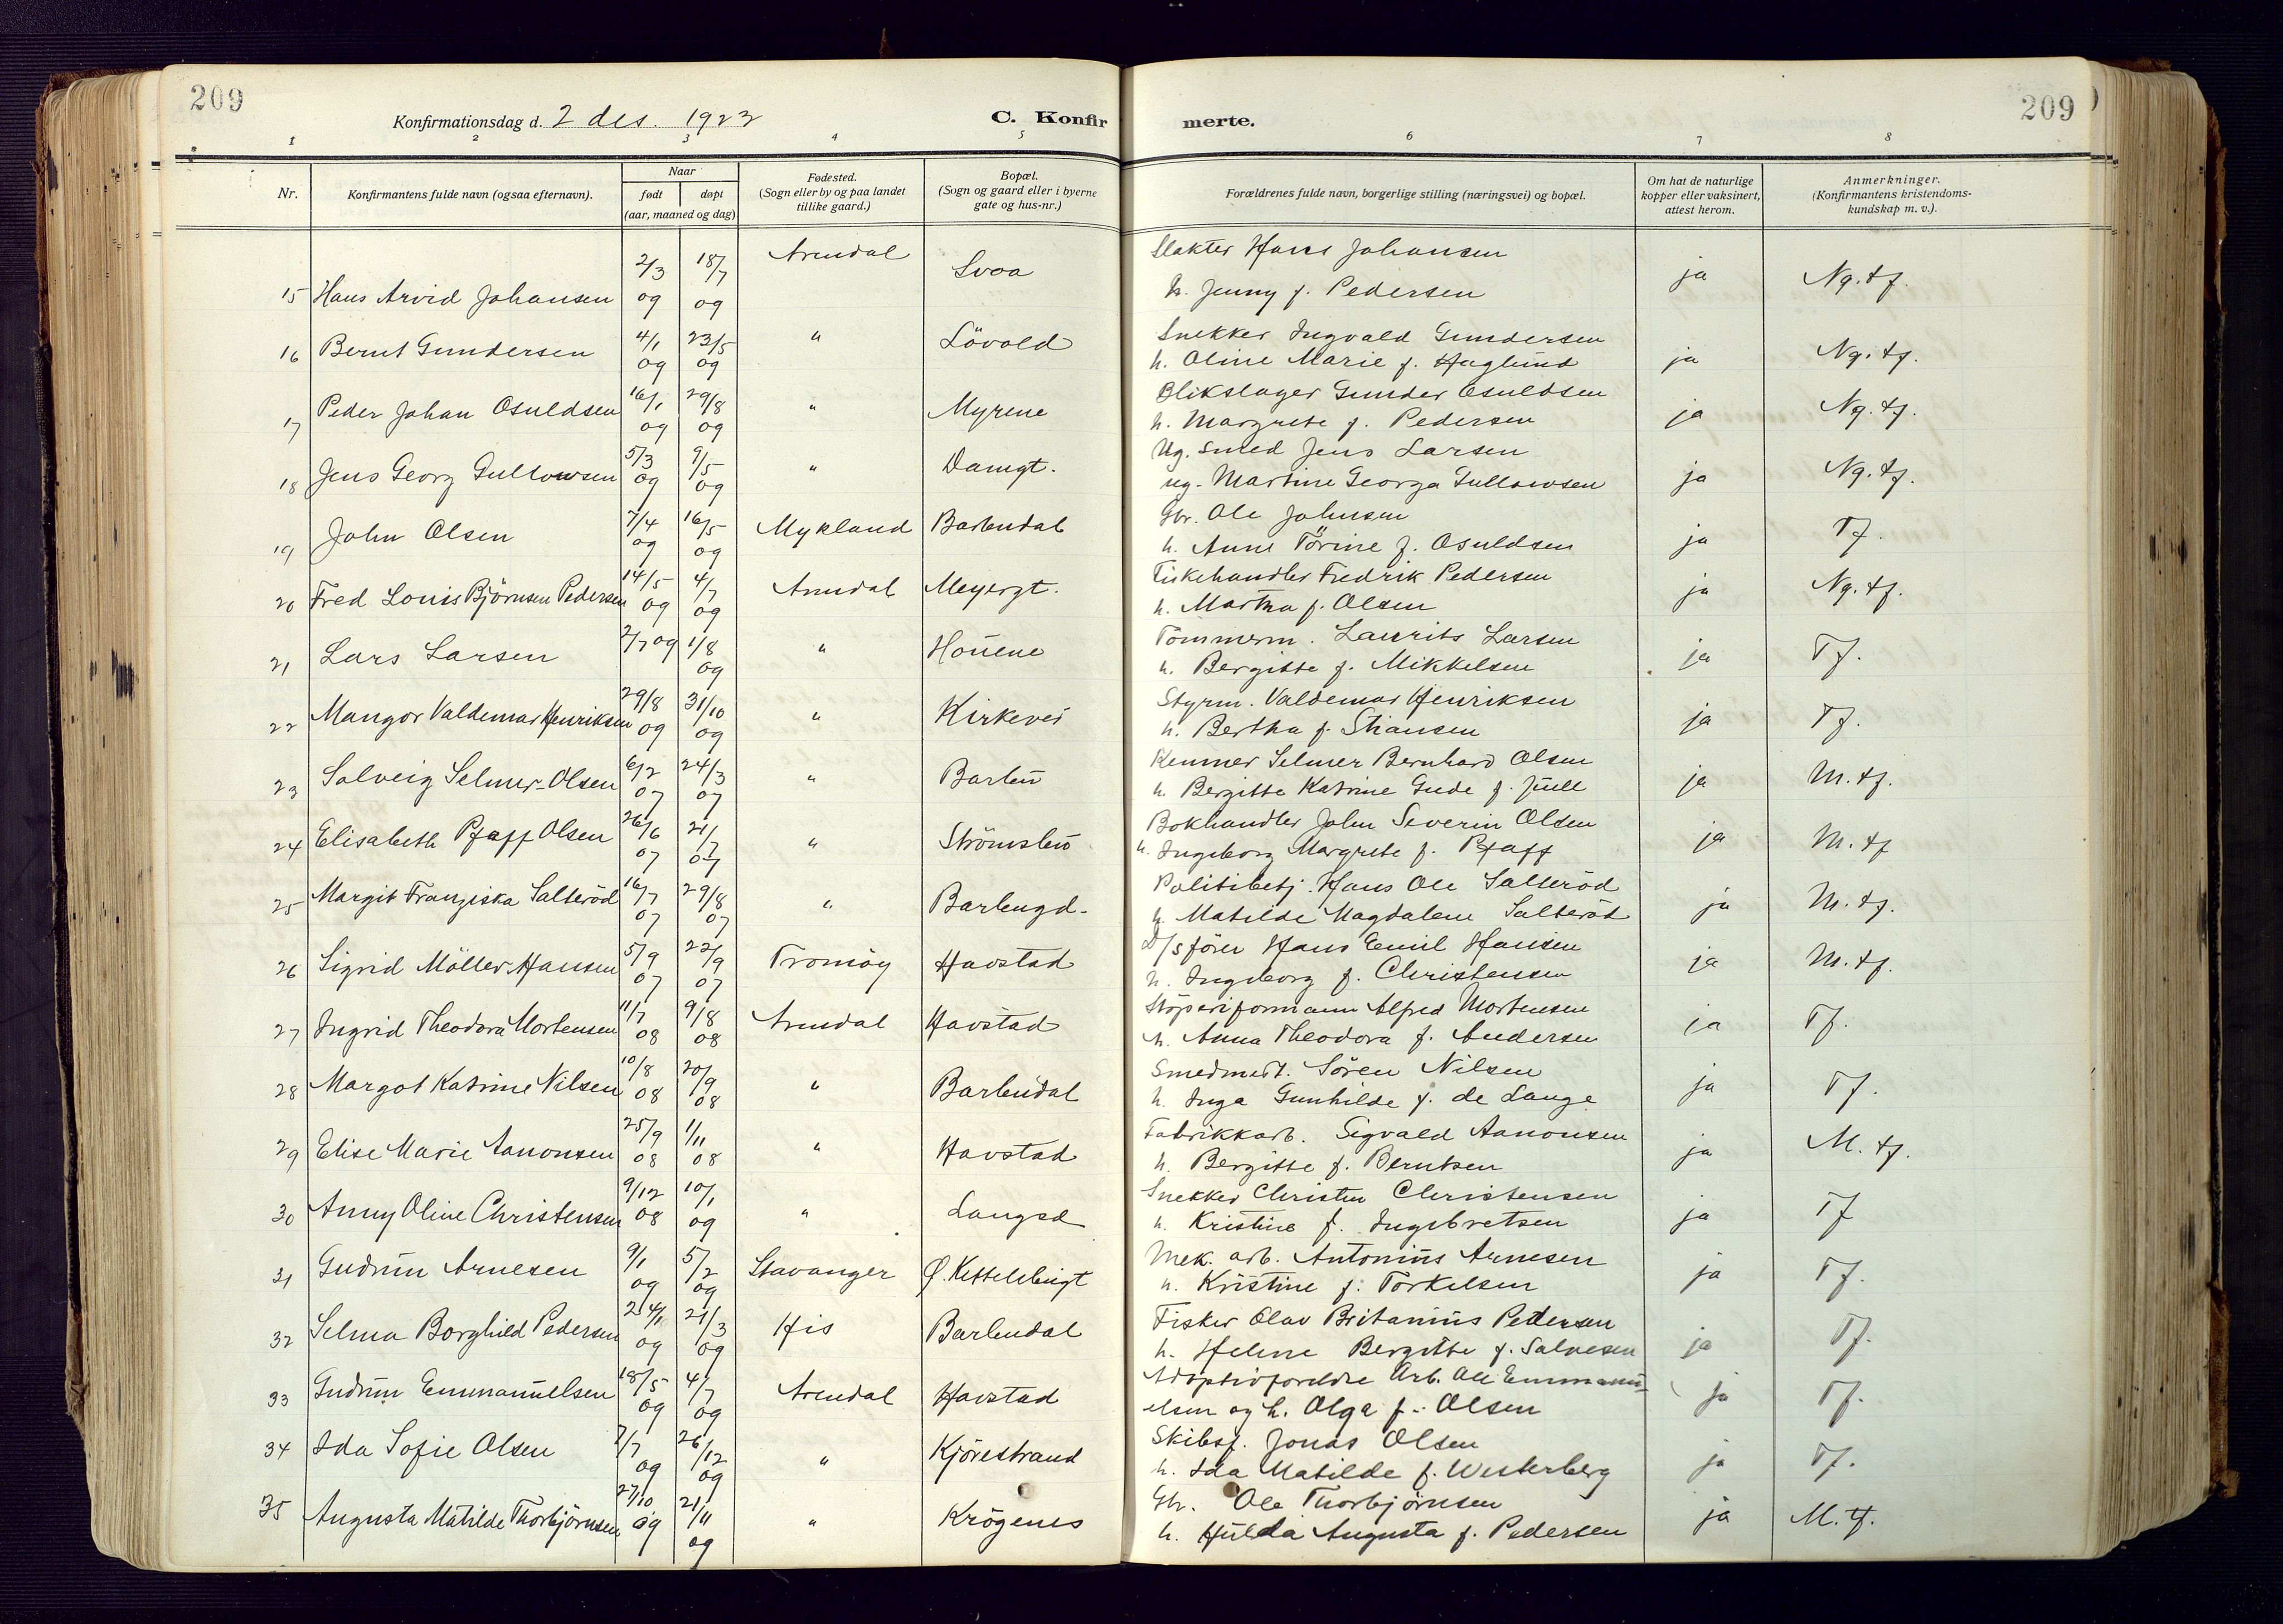 209
209
Konfirmationsdag d. 2 des. 1923
C. Konfir
merte.
1 2 3 4 5 6 7 8
Nr.
Konfirmantens fulde navn (ogsaa efternavn).
Naar
født døpt
(aar, maaned og dag)
Fødested.
(Sogn eller by og paa landet
tillike gaard.)
Bopæl.
(Sogn og gaard eller i byerne
gate og hus-nr.)
Forældrenes fulde navn, borgerlige stilling (næringsvei) og bopæl.
Om hat de naturlige
kopper eller vaksinert,
attest herom.
Anmerkninger.
(Konfirmantens kristendoms-
kundskap m. v.).
15 Hans Arvid Johansen 2/3 09 18/7 09 Arendal Svoa Slakter Hans Johansen
h. Jenny f. Pedersen ja Ng. tf.
16 Bernt Gundersen 4/1 09 23/5 09 " Løvold Snekker Ingvald Gundersen
h. Oline Marie f. Haglund ja Ng. tf.
17 Peder Johan Osuldsen 16/1 09 29/8 09 " Myrene Blikslager Gunder Osuldsen
h. Margrete f. Pedersen ja Ng. tf.
18 Jens Georg Gullowsen 5/3 09 9/5 09 " Damgt. Ug. smed Jens Larsen
ug. Martine Georga Gullowsen ja Ng. tf.
19 John Olsen 7/4 09 16/5 09 Mykland Barbudal Gbr. Ole Johnsen
h. Anne Törine f. Osuldsen ja Tf.
20 Fred Louis Björnsen Pedersen 14/5 09 4/7 09 Arendal Meyergt. Fiskehandler Fredrik Pedersen
h. Martha f. Olsen ja Ng. tf.
21 Lars Larsen 2/7 09 1/8 09 " Houene Tömmerm. Laurits Larsen
h. Bergitte f. Mikkelsen ja Tf.
22 Mangor Valdemar Henriksen 29/8 09 31/10 09 " Kirkevei Styrm. Valdemar Henriksen
h. Bertha f. Stiansen ja Tf.
23 Solveig Selmer-Olsen 6/2 07 24/3 07 " Barbu Kemner Selmer Bernhard Olsen
h. Bergitte Katrine Gude f. Juell ja M. tf.
24 Elisabeth Pfaff Olsen 26/6 07 21/7 07 " Strömsbu Bokhandler John Severin Olsen
h. Ingeborg Margrete f. Pfaff ja M. tf
25 Margit Franziska Salteröd 16/7 07 29/8 07 " Barbugd. Politibetj. Hans Ole Salteröd
h. Matilde Magdalene Salteröd ja M. tf.
26 Sigrid Möller Hansen 5/9 07 22/9 07 Tromöy Havstad D/S förer Hans Emil Hansen
h. Ingeborg f. Christensen ja M. tf.
27 Ingrid Theodora Mortensen 11/7 08 9/8 08 Arendal Havstad Stöperiformann Alfred Mortensen
h. Anna Theodora f. Andersen ja Tf.
28 Margot Katrine Nilsen 10/8 08 20/9 08 " Barbudal Smedmest. Sören Nilsen
h. Inga Gunhilde f. de Lange ja Tf.
29 Elise Marie Aanonsen 25/9 08 1/11 08 " Havstad Fabrikkarb. Sigvald Aanonsen
h. Bergitte f. Berntsen ja M. tf.
30 Anny Oline Christensen 9/12 08 10/1 09 " Langsd Snekker Christen Christensen
h. Kristine f. Ingebretsen ja Tf
31 Gudrun Arnesen 9/1 09 5/2 09 Stavanger Ø. Kittelsbugt Mek. arb. Antonius Arnesen
h. Kristine f. Torkelsen ja Tf.
32 Selma Borghild Pedersen 24/1 09 21/3 09 His Barbudal Fisker Olav Britanius Pedersen
h. Helene Bergitte f. Salvesen ja Tf.
33 Gudrun Emmanuelsen 18/5 09 4/7 09 Arendal Havstad Adoptivforeldre Arb. Ole Emmanu-
elsen og h. Olga f. Olsen ja Tf.
34 Ida Sofie Olsen 7/7 09 26/12 09 " Kjörestrand Skibsf. Jonas Olsen
h. Ida Matilde f. Westerberg ja Tf.
35 Augusta Matilde Thorbjörnsen 27/10 09 21/11 09 " Krögenes Gbr. Ole Thorbjørnsen
h. Hulda Augusta f. Pedersen ja M. tf.